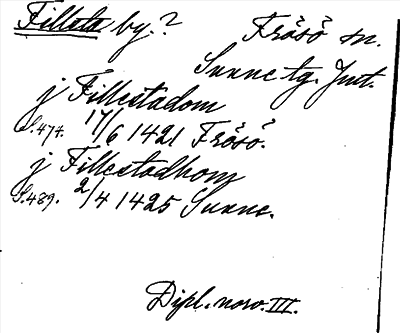 Fillsta by.? Frösö sn.
Sunne tg. Jmt.
j Fillestadom
S. 474. 17/6 1421 Frösö.
j Fillestadhom
S. 489. 2/4 1425 Sunne.
Dipl. norv. III.